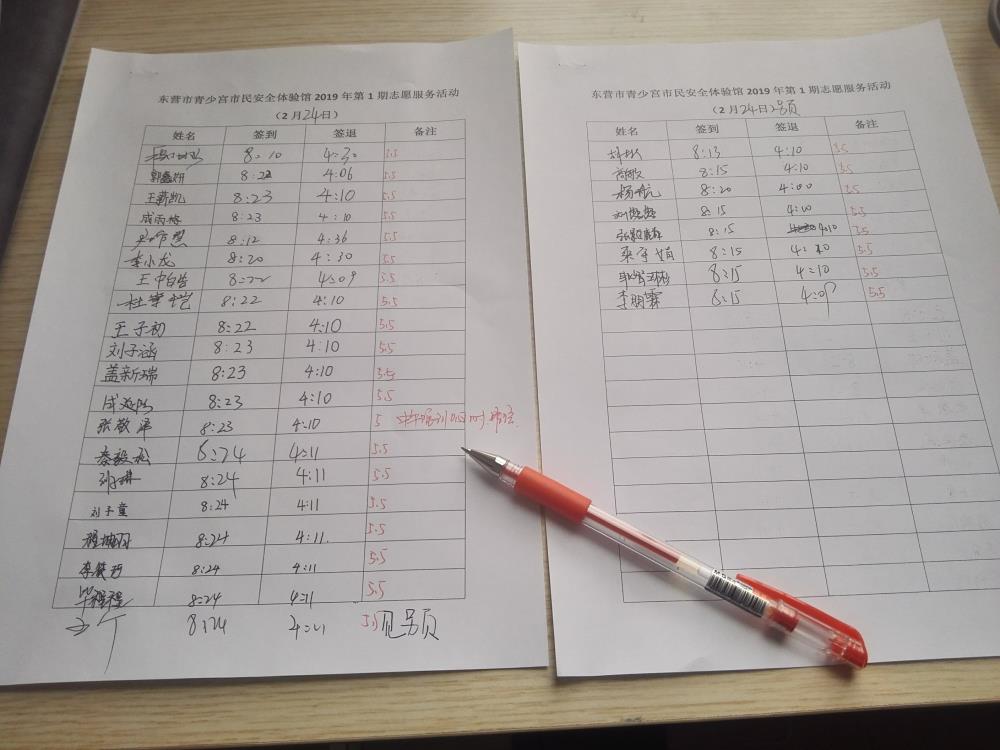 东营市青少宫市民安全体验馆 2019 年第 1 期志愿服务活动
（2 月 24 日）
姓名 签到 签退 备注
8:10 4:30 5.5
郭鑫妍 8:22 4:06 5.5
王薪凯 8:23 4:10 5.5
成雨格 8:23 4:10 5.5
8:12 4:36 5.5
李小龙 8:20 4:30 5.5
王中白 8:22 4:09 5.5
杜 8:22 4:10 5.5
王子初 8:22 4:10 5.5
刘子涵 8:23 4:10 5.5
盖新瑞 8:23 4:10 5.5
成 8:23 4:10 5.5
张敬泽 8:23 4:10 5
秦毅松 8:24 4:11 5.5
8:24 4:11 5.5
刘子童 8:24 4:11 5.5
8:24 4:11 5.5
李 8:24 4:11 5.5
毕程程 8:24 4:11 5.5
8:24 4:11 5.5 见另页
东营市青少宫市民安全体验馆 2019 年第 1 期志愿服务活动
（2 月 24 日）另页
姓名 签到 签退 备注
8:13 4:10 5.5
8:15 4:10 5.5
杨航 8:20 4:00 5.5
刘 8:15 4:10 5.5
张 8:15 4:10 5.5
8:15 4:10 5.5
8:15 4:10 5.5
李明霖 8:15 4:09 5.5